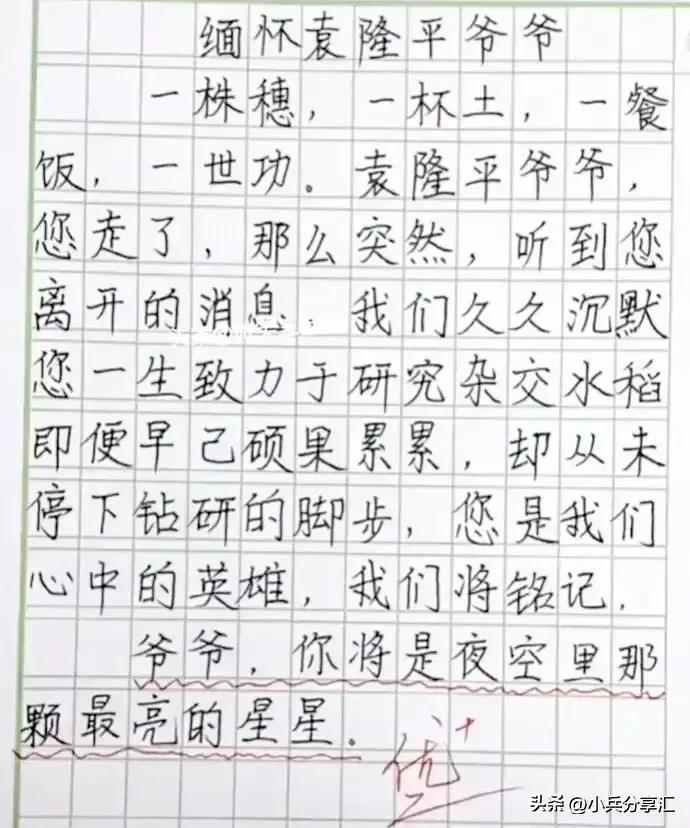 缅怀袁隆平爷爷
一株穗，一杯土，一餐
饭，一世功。袁隆平爷爷，
您走了，那么突然，听到您
离开的消息 我们久久沉默
您一生致力于研究杂交水稻
即便早己硕果累累，却从未
停下钻研的脚步，您是我们
心中的英雄，我们将铭记，
爷爷，你将是夜空里那
颗最亮的星星。
优+
头条@小兵分享汇